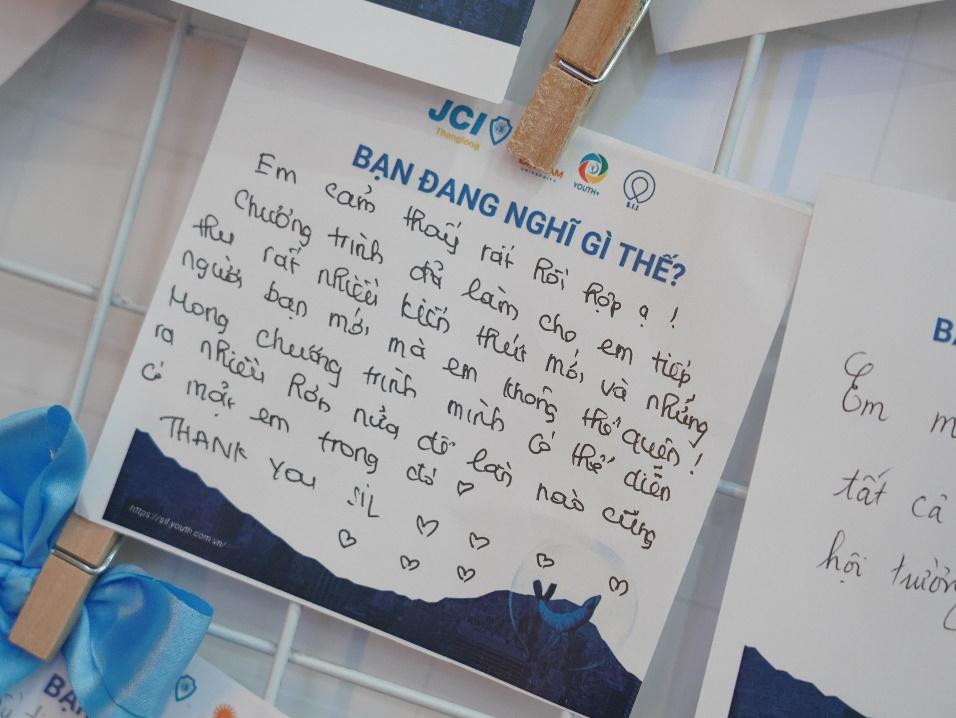 JCI
Thanglong
YOUTH+
S.I.L
BẠN ĐANG NGHĨ GÌ THẾ?
Em cảm thấy rất hồi hộp ạ !
Chương trình đã làm cho em tiếp
thu rất nhiều kiến thức mới và những
người bạn mới mà em không thể quên !
Mong chương trình mình có thể diễn
ra nhiều hơn nữa để lần nào cũng
có mặt em trong đó ♡
THANK YOU SIL ♡ ♡ ♡ ♡
♡ ♡ ♡ ♡
https://sil.youth.com.vn/
Em
tất cả
hội trường